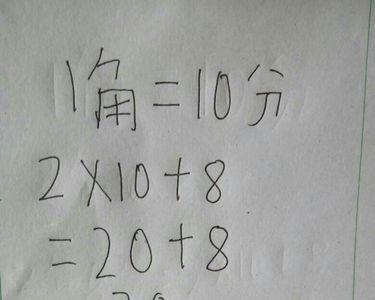 1角=10分
2×10+8
=20+8